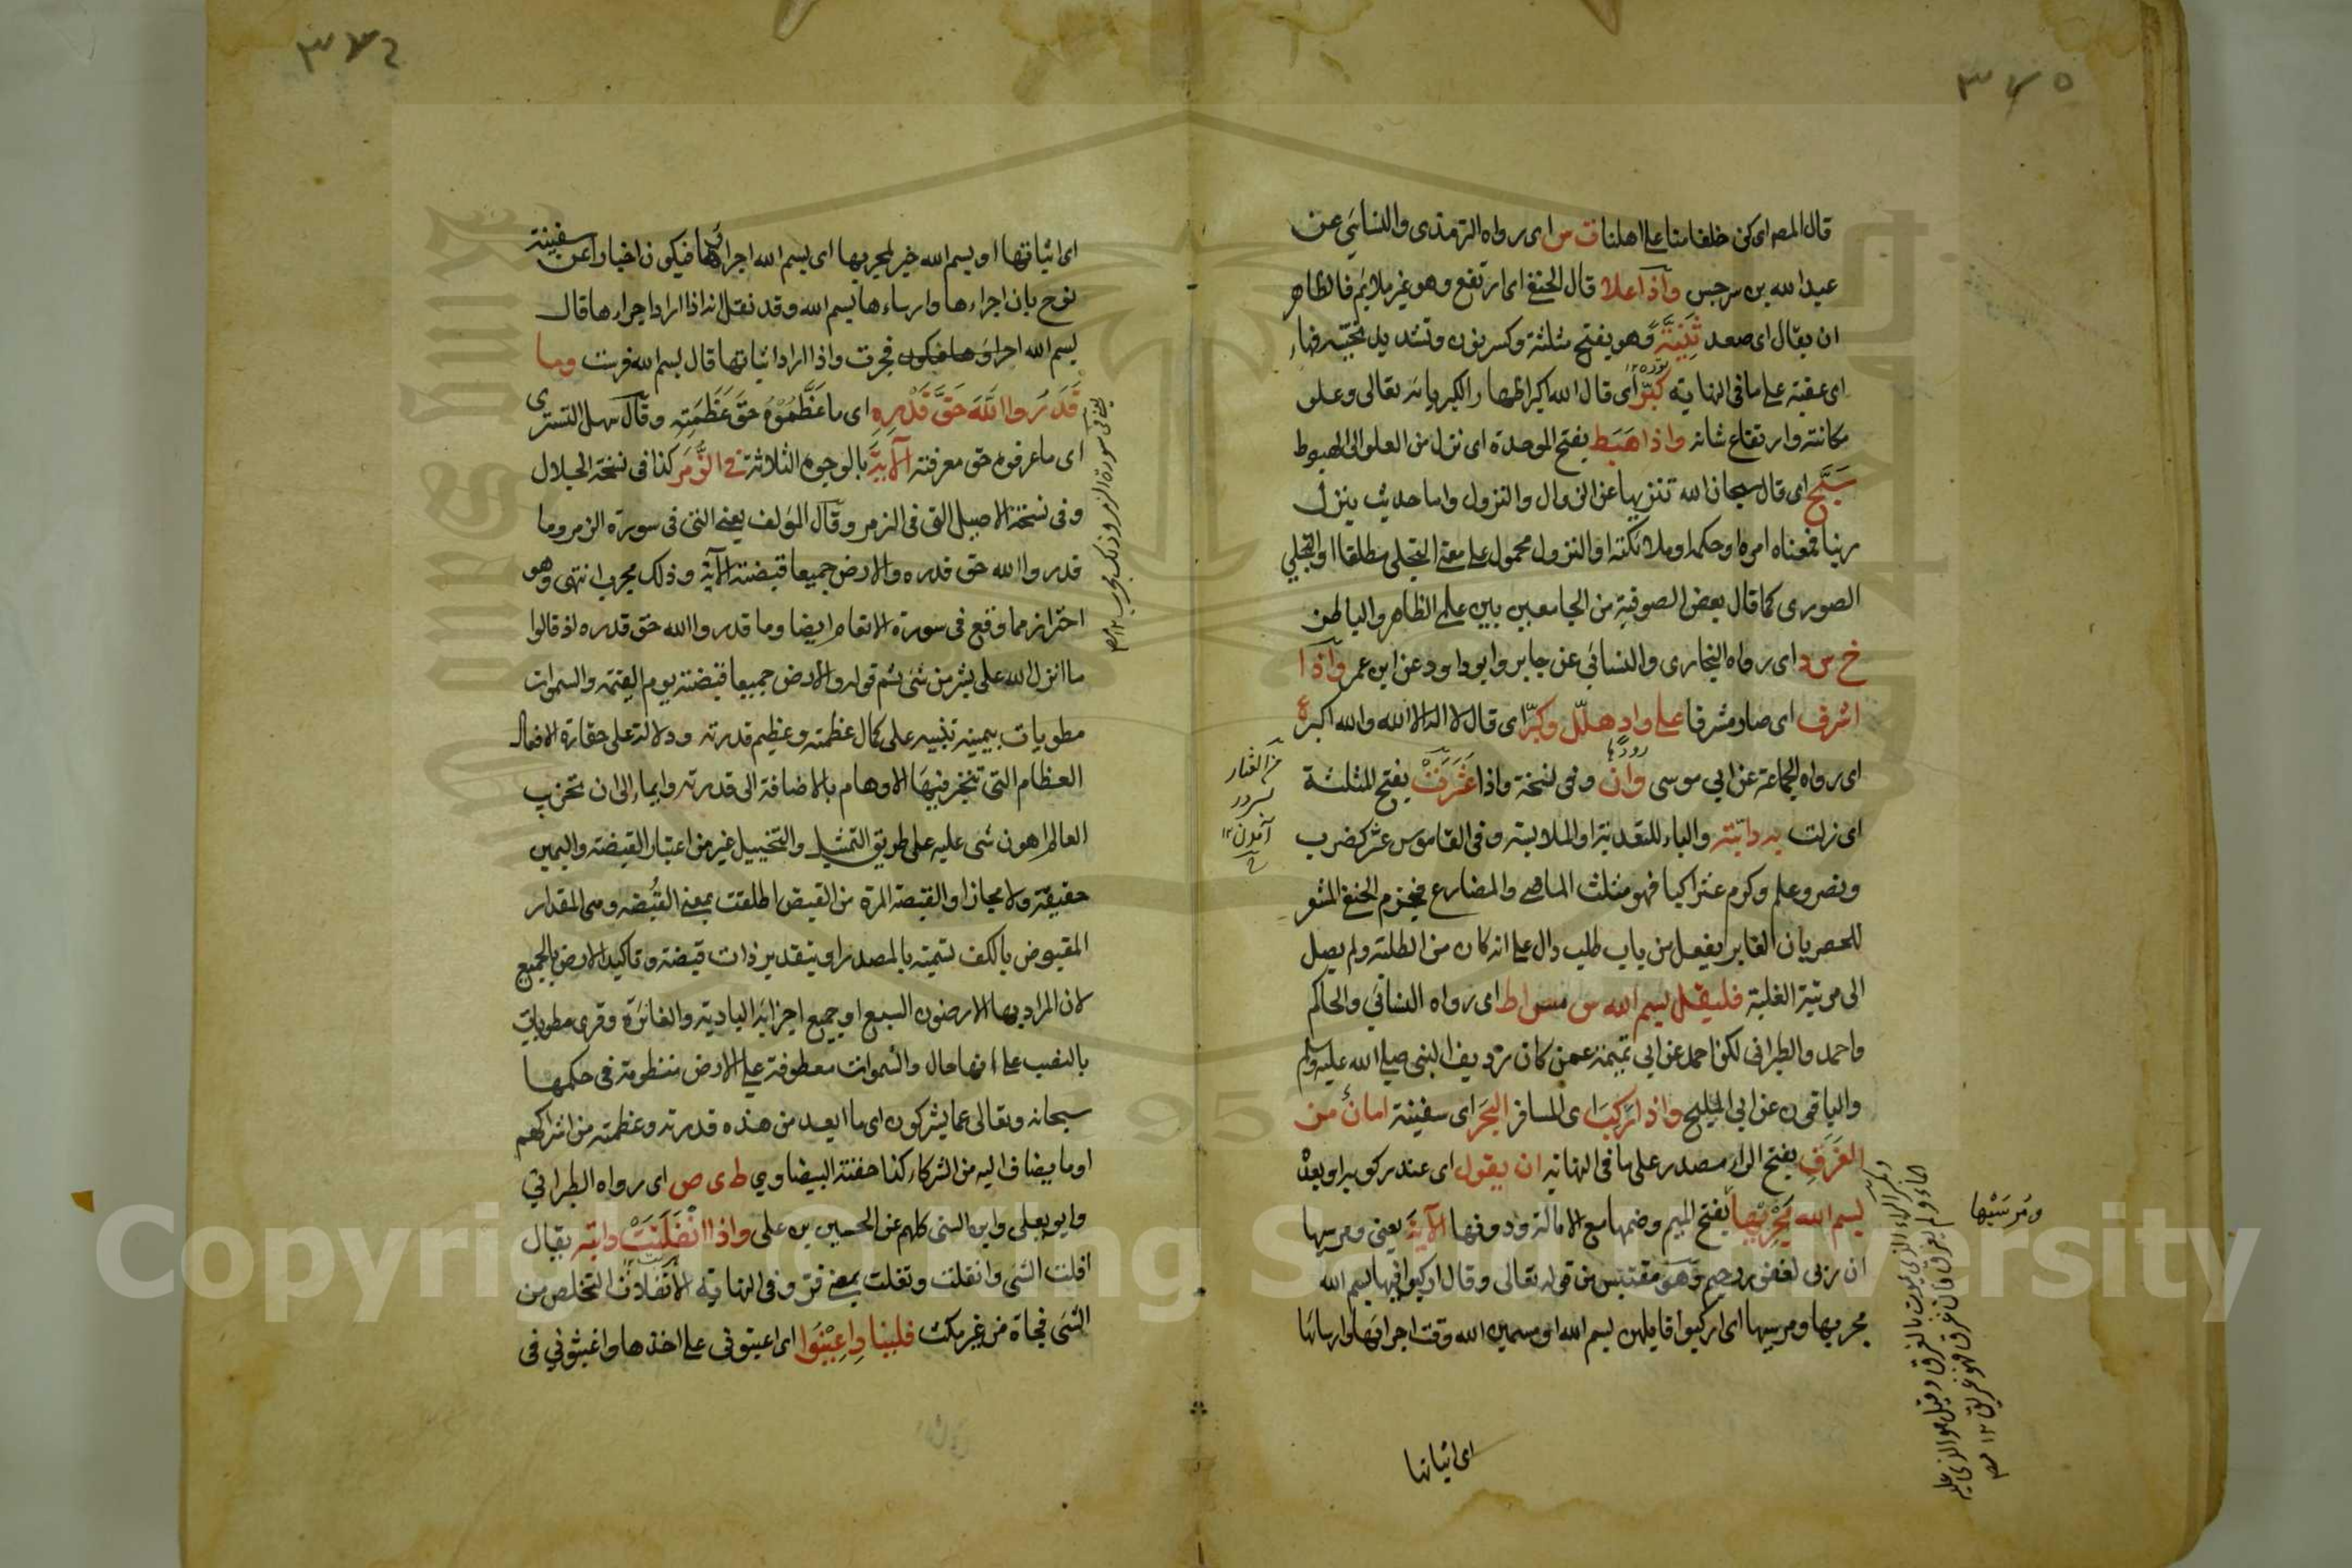 ٣٧٥
قال المصر اى كن خلفا منا على اهلنا ت س اى رواه الترمذى والنسائى عن
عبد الله بن سرجس واذا علا قال الحنفى اى ارتفع وهو غير ملايم فالظاهر
ان يقال اى صعد ثَنِيَّةً وهو بفتح مثلثة وكسر نون وتشديد تحتية فهاء
اى عقبة على ما فى النهاية كبّر اى قال الله اكبر اظهارا لكبريائه تعالى وعلو
مكانته وارتفاع شانه واذا هَبَط بفتح الموحدة اى نزل من العلو الى الهبوط
سَبَّح اى قال سبحان الله تنزيها عن الزوال والنزول واما حديث ينزل
ربنا فمعناه امره او حكمه او ملائكته او النزول محمول على معنى التجلى مطلقا او التجلي
الصورى كما قال بعض الصوفية من الجامعين بين علمى الظاهر والباطن
خ س د اى رواه البخارى والنسائي عن جابر وابو داود عن ابن عمر واذا
اشرف اى صار مشرفا على واد هلّل وكبّر اى قال لا اله الا الله والله اكبر ع
اى رواه الجماعة عن ابي موسى وان وفى نسخة واذا عَثَرَتْ بفتح المثلثة
اى زلت به دابّته والباء للتعدية او الملابسة وفى القاموس عثر كضرب
ونصر وعلم وكرم عثرا كبا فهو مثلث الماضى والمضارع فجزم الحنفى المشعر
للحصر بان الغابر يفعل من باب طلب دال على انه كان من الطلبة ولم يصل
الى مرتبة الغلبة فليقل بسم الله س مس ا ط اى رواه النسائي والحاكم
واحمد والطبرانى لكن احمد عن ابي تميمة عمن كان رديف النبى صلى الله عليه وسلم
والباقون عن ابي المليح واذا رَكِبَ اى المسافر البحرَ اى سفينة امانٌ من
الغَرَقِ بفتح الراء مصدر على ما فى النهاية ان يقول اى عند ركوبه او بعده
بسم الله مَجْرٖيهَا بفتح الميم وضمها مع الامالة ودونها الآيةَ يعنى ومرسيها
ان ربى لغفور رحيم وهو مقتبس من قوله تعالى وقال اركبوا فيها بسم الله
مجريها ومرسيها اى اركبوا قايلين بسم الله او مسمين الله وقت اجرائها وارسائها
اى اثباتها
ومَرسَيْها
٣٧٦
اى اثباتها او بسم الله خبر لمجريها اى بسم الله اجراؤها فيكون اخبارا عن سفينة
نوح بان اجراءها وارساءها بسم الله وقد نقل انه اذا اراد اجراءها قال
بسم الله فجرت واذا اراد اثباتها قال بسم الله فرست وما
قَدَرُوا اللّٰهَ حَقَّ قَدْرِهِ اى ما عَظَّمُوْهُ حَقَّ عَظَمَتِهِ وقال سهل التسترى
اى ما عرفوه حق معرفته الآيةَ بالوجوه الثلاثة فى الزُّمَر كذا فى نسخة الجلال
وفى نسخة الاصيل التى فى الزمر وقال المؤلف يعنى التى فى سورة الزمر وما
قدروا الله حق قدره والارض جميعا قبضته الآية وذلك مجرب انتهى وهو
احتراز مما وقع فى سورة الانعام ايضا وما قدروا الله حق قدره اذ قالوا
ما انزل الله على بشر من شئ ثم قوله والارض جميعا قبضته يوم القيمة والسموات
مطويات بيمينه تنبيه على كمال عظمته وعظيم قدرته ودلالة على حقارة الافعال
العظام التى تتحير فيها الاوهام بالاضافة الى قدرته وايماء الى ان تخريب
العالم اهون شئ عليه على طريق التمثيل والتخييل غير من اعتبار القبضة واليمين
حقيقة ولا مجازا والقبضة المرة من القبض اطلقت بمعنى القُبضه وهى المقدار
المقبوض بالكف تسمية بالمصدر او بتقدير ذات قبضة وتاكيد الارض بالجميع
لان المراد بها الارضون السبع او جميع اجزائه البادية والغائرة وقرى مطويات
بالنصب على انها حال والسموات معطوفة على الارض منظومة فى حكمها
سبحانه وتعالى عما يشركون اى ما ابعد من هذه قدرته وعظمته من اشراكهم
او ما يضاف اليه من الشركاء كذا حققه البيضاوي ط ى ص اى رواه الطبرانى
وابو يعلى وابن السنى كلهم عن الحسين بن على واذا انْفَلَتَتْ دابّته يقال
افلت الشئ وانفلت وتفلت بمعنى فر وفى النهاية الانفلات التخلص من
الشئ فجاة من غير مكث فلينادِ اَعِيْنُوا اى اعينونى على اخذها واغيثونى فى
Copyright © King Saud University